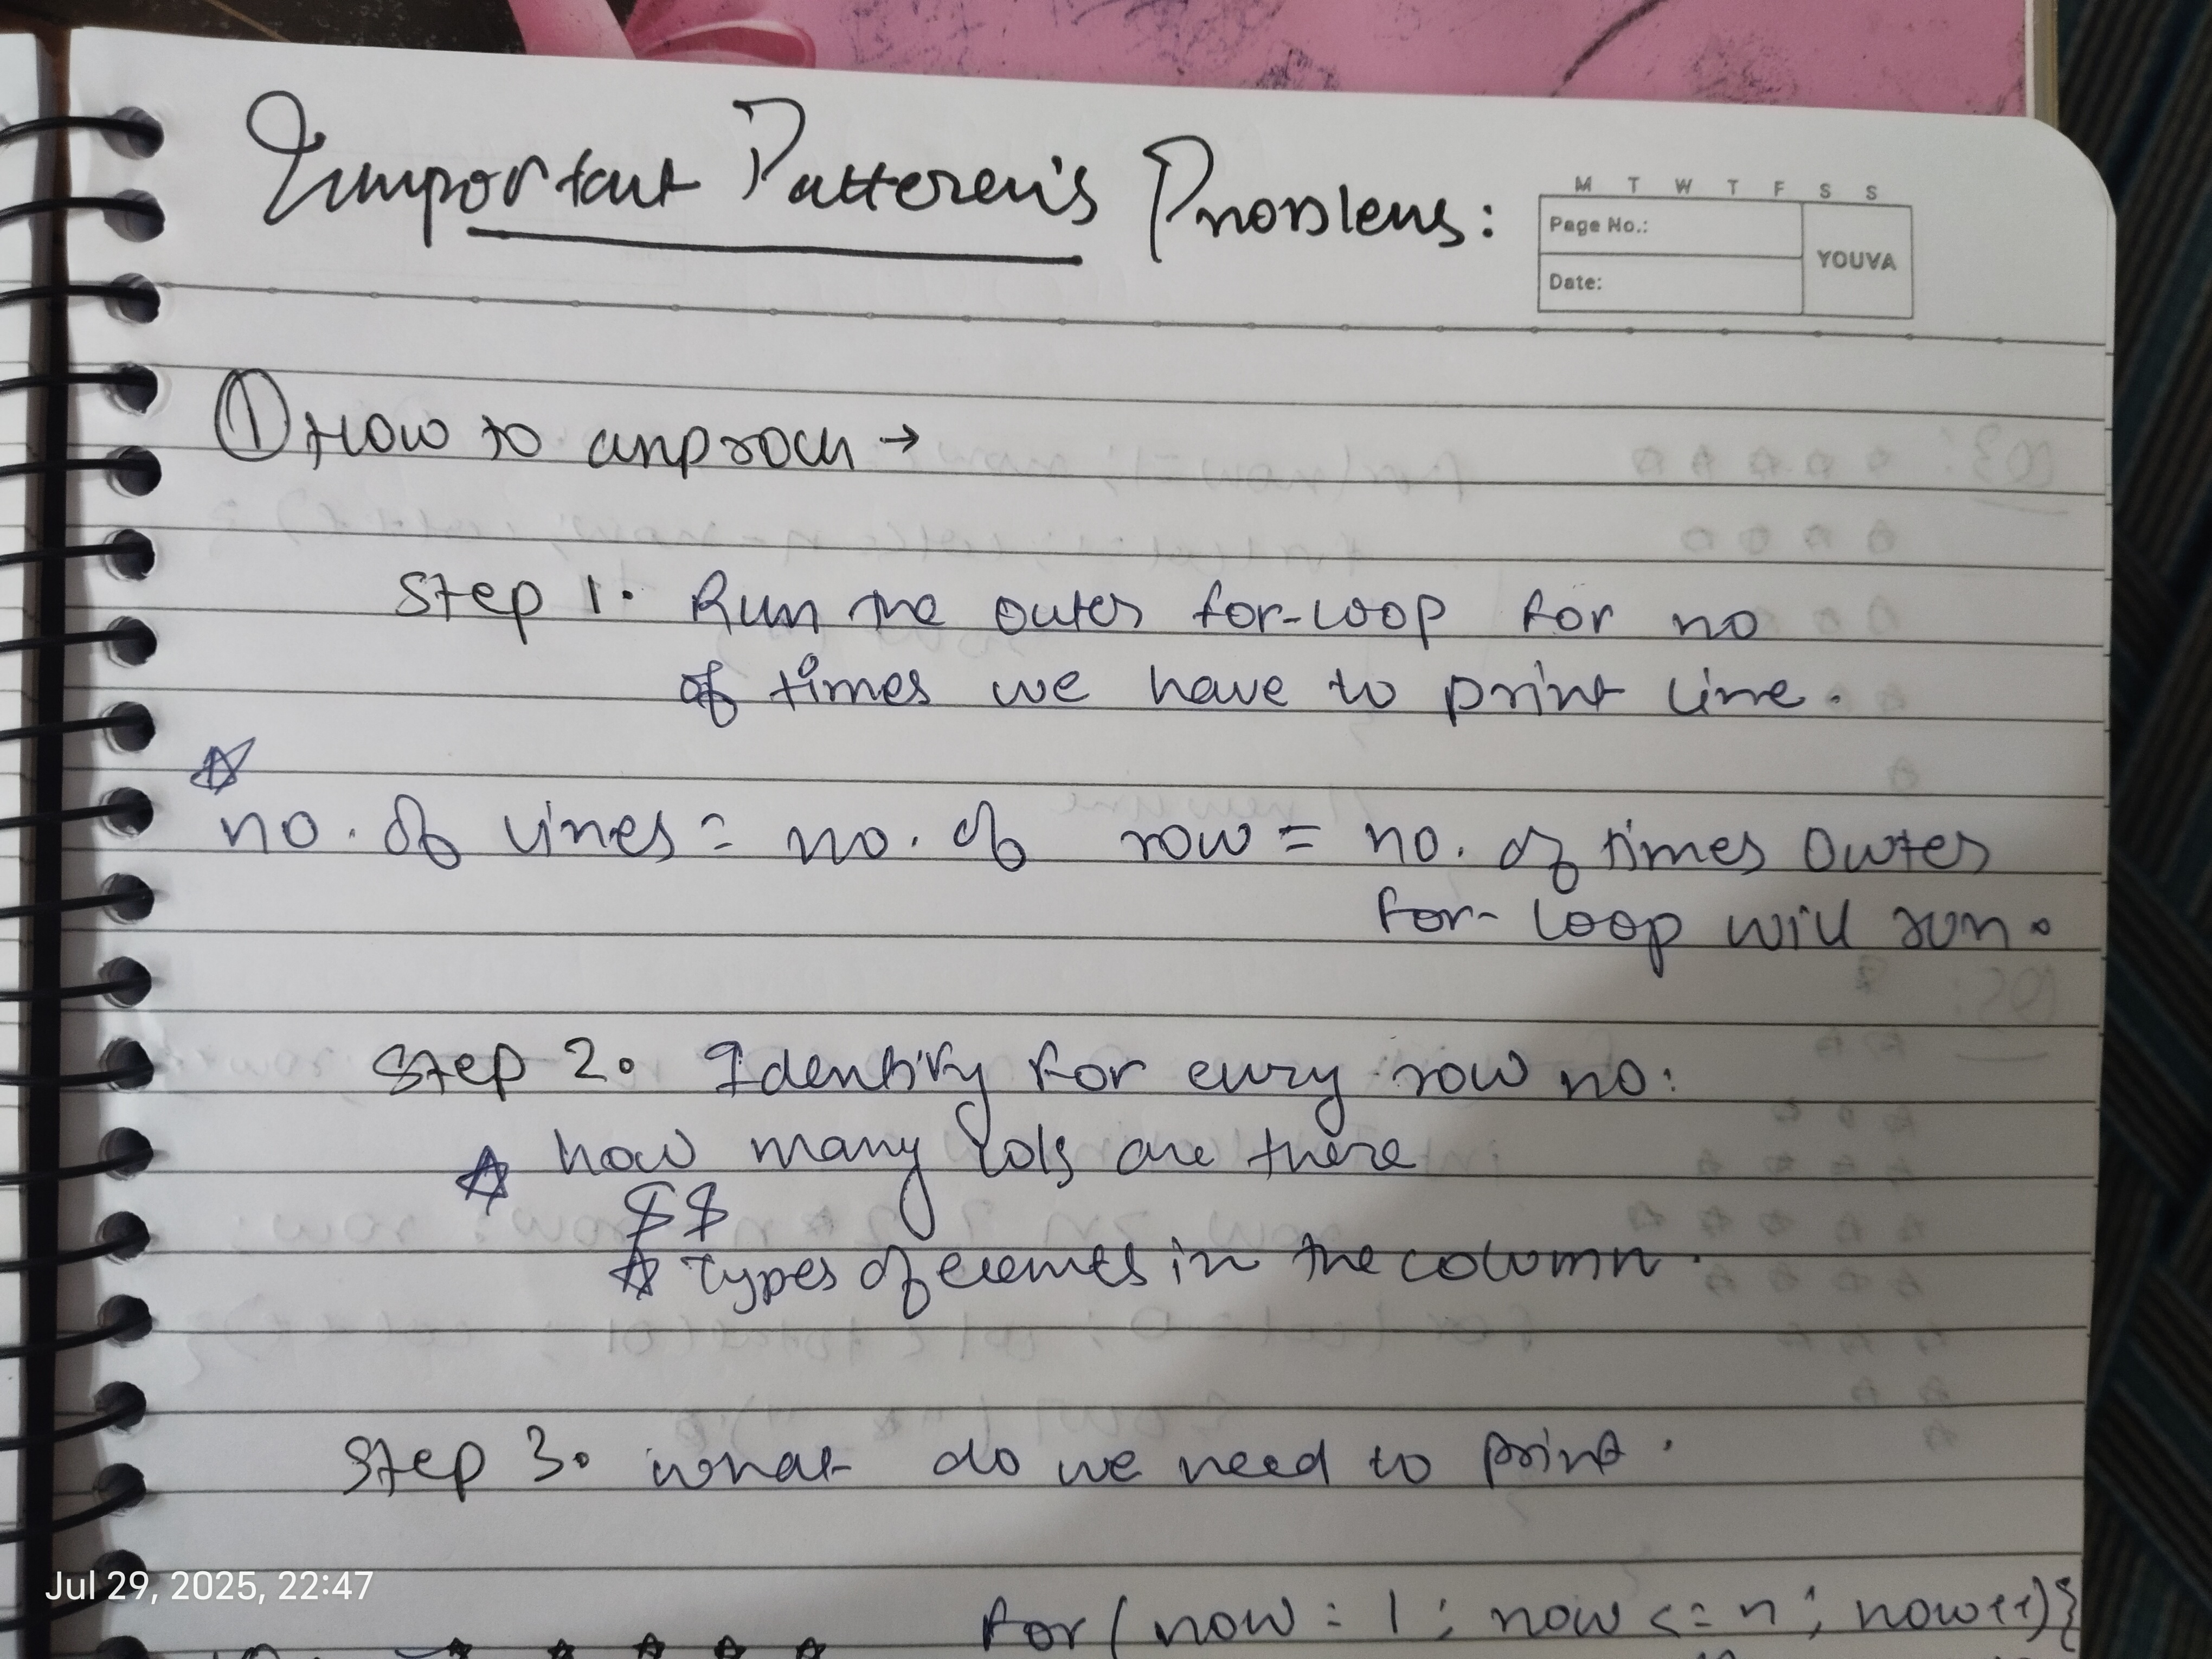 Important Patteren's Problems:
M T W T F S S
Page No.:
YOUVA
Date:
① How to approch →
Step 1. Run the outer for-loop for no
of times we have to print line.
☆
no. of lines = no. of row = no. of times outer
for-loop will run.
Step 2. Identify for every row no:
☆ how many cols are there
&&
☆ Types of elements in the column.
Step 3. what do we need to print.
for(row = 1; row <= n; row++){
☆ ☆ ☆ ☆ ☆
Jul 29, 2025, 22:47